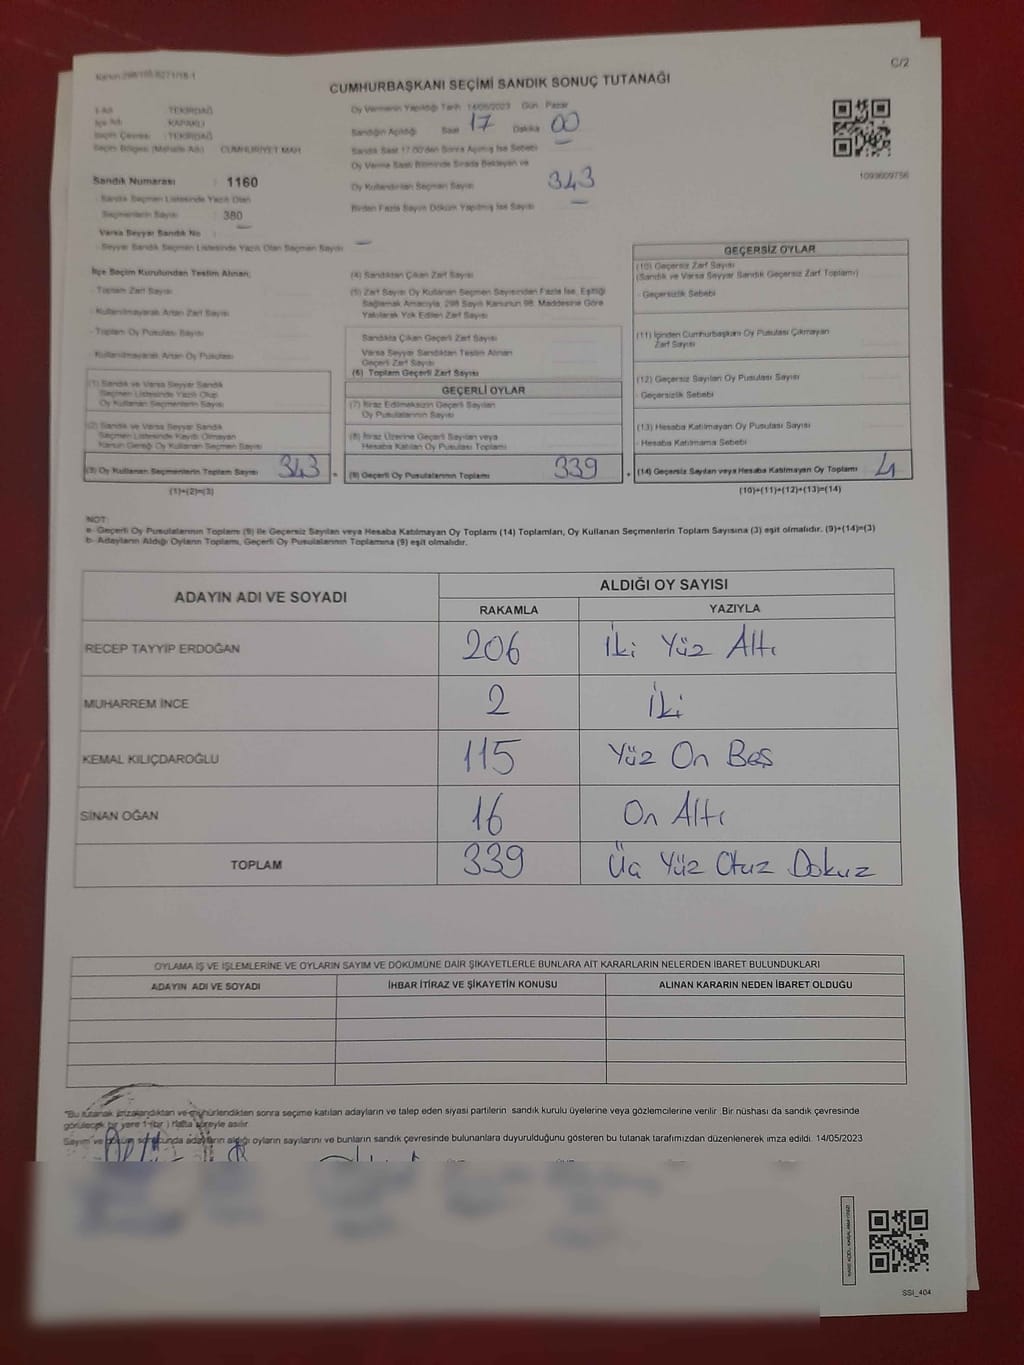 C/2
CUMHURBAŞKANI SEÇİMİ SANDIK SONUÇ TUTANAĞI
İl Adı : TEKİRDAĞ
İlçe Adı : KAPAKLI
Seçim Çevresi : TEKİRDAĞ
Seçim Bölgesi (Mahalle Adı) : CUMHURİYET MAH
Sandık Numarası : 1160
Sandık Seçmen Listesinde Yazılı Olan
Seçmenlerin Sayısı : 380
Varsa Seyyar Sandık No :
- Seyyar Sandık Seçmen Listesinde Yazılı Olan Seçmen Sayısı –
Oy Vermenin Yapıldığı Tarih 14/05/2023 Gün Pazar
Sandığın Açıldığı Saat 17 Dakika 00
Sandık Saat 17.00'den Sonra Açılmış İse Sebebi –
Oy Verme Saati Bitiminde Sırada Bekleyen ve
Oy Kullandırılan Seçmen Sayısı 343
Birden Fazla Sayım Döküm Yapılmış İse Sayısı –
1093609756
İlçe Seçim Kurulundan Teslim Alınan;
- Toplam Zarf Sayısı
- Kullanılmayarak Artan Zarf Sayısı
- Toplam Oy Pusulası Sayısı
- Kullanılmayarak Artan Oy Pusulası
(1) Sandık ve Varsa Seyyar Sandık
Seçmen Listesinde Yazılı Olup
Oy Kullanan Seçmenlerin Sayısı
(2) Sandık ve Varsa Seyyar Sandık
Seçmen Listesinde Kayıtlı Olmayan
Kanun Gereği Oy Kullanan Seçmen Sayısı
(3) Oy Kullanan Seçmenlerin Toplam Sayısı 343 =
(1)+(2)=(3)
(4) Sandıktan Çıkan Zarf Sayısı
(5) Zarf Sayısı Oy Kullanan Seçmen Sayısından Fazla İse, Eşitliği
Sağlamak Amacıyla, 298 Sayılı Kanunun 98. Maddesine Göre
Yakılarak Yok Edilen Zarf Sayısı
Sandıkta Çıkan Geçerli Zarf Sayısı
Varsa Seyyar Sandıktan Teslim Alınan
Geçerli Zarf Sayısı
(6) Toplam Geçerli Zarf Sayısı
GEÇERLİ OYLAR
(7) İtiraz Edilmeksizin Geçerli Sayılan
Oy Pusulalarının Sayısı
(8) İtiraz Üzerine Geçerli Sayılan veya
Hesaba Katılan Oy Pusulası Toplamı
(9) Geçerli Oy Pusulalarının Toplamı 339 +
GEÇERSİZ OYLAR
(10) Geçersiz Zarf Sayısı
(Sandık ve Varsa Seyyar Sandık Geçersiz Zarf Toplamı)
- Geçersizlik Sebebi
(11) İçinden Cumhurbaşkanı Oy Pusulası Çıkmayan
Zarf Sayısı
(12) Geçersiz Sayılan Oy Pusulası Sayısı
- Geçersizlik Sebebi
(13) Hesaba Katılmayan Oy Pusulası Sayısı
- Hesaba Katılmama Sebebi
(14) Geçersiz Sayılan veya Hesaba Katılmayan Oy Toplamı 4
(10)+(11)+(12)+(13)=(14)
NOT:
a- Geçerli Oy Pusulalarının Toplamı (9) ile Geçersiz Sayılan veya Hesaba Katılmayan Oy Toplamı (14) Toplamları, Oy Kullanan Seçmenlerin Toplam Sayısına (3) eşit olmalıdır. (9)+(14)=(3)
b- Adayların Aldığı Oyların Toplamı, Geçerli Oy Pusulalarının Toplamına (9) eşit olmalıdır.
ADAYIN ADI VE SOYADI
ALDIĞI OY SAYISI
RAKAMLA YAZIYLA
RECEP TAYYİP ERDOĞAN 206 İki Yüz Altı
MUHARREM İNCE 2 İki
KEMAL KILIÇDAROĞLU 115 Yüz On Beş
SİNAN OĞAN 16 On Altı
TOPLAM 339 Üç Yüz Otuz Dokuz
OYLAMA İŞ VE İŞLEMLERİNE VE OYLARIN SAYIM VE DÖKÜMÜNE DAİR ŞİKAYETLERLE BUNLARA AİT KARARLARIN NELERDEN İBARET BULUNDUKLARI
ADAYIN ADI VE SOYADI İHBAR İTİRAZ VE ŞİKAYETİN KONUSU ALINAN KARARIN NEDEN İBARET OLDUĞU
"Bu tutanak imzalandıktan ve mühürlendikten sonra seçime katılan adayların ve talep eden siyasi partilerin sandık kurulu üyelerine veya gözlemcilerine verilir. Bir nüshası da sandık çevresinde
görülecek bir yere 1 (bir ) hafta süreyle asılır.
Sayım ve döküm sonucunda adayların aldığı oyların sayılarını ve bunların sandık çevresinde bulunanlara duyurulduğunu gösteren bu tutanak tarafımızdan düzenlenerek imza edildi. 14/05/2023
SSI_404